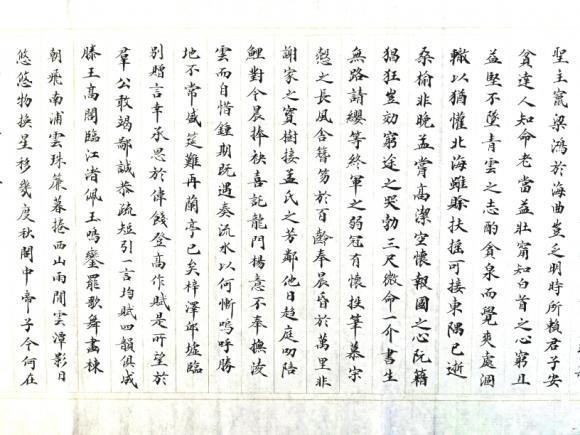 聖主竄梁鴻於海曲豈乏明時所賴君子安
貧達人知命老當益壯甯知白首之心窮且
益堅不墜青雲之志酌貪泉而覺爽處涸
轍以猶懽北海雖賒扶搖可接東隅已逝
桑榆非晚孟嘗高潔空懷報國之心阮籍
猖狂豈効窮途之哭勃三尺微命一介書生
無路請纓等終軍之弱冠有懷投筆慕宗
愨之長風舍簪笏於百齡奉晨昏於萬里非
謝家之寶樹接孟氏之芳鄰他日趨庭叨陪
鯉對今晨捧袂喜託龍門楊意不奉撫凌
雲而自惜鍾期既遇奏流水以何慚嗚呼勝
地不常盛筵難再蘭亭已矣梓澤邱墟臨
別贈言幸承恩於偉餞登高作賦是所望於
羣公敢竭鄙誠恭疏短引一言均賦四韻俱成
滕王高閣臨江渚佩玉鳴鑾罷歌舞畫棟
朝飛南浦雲珠簾暮捲西山雨閒雲潭影日
悠悠物換星移幾度秋閣中帝子今何在